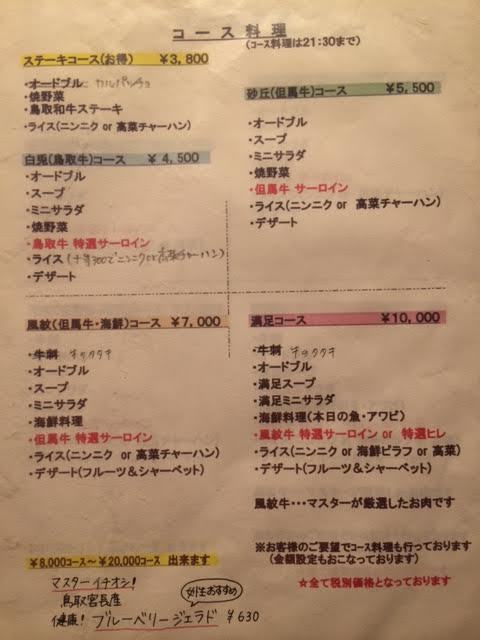 コース料理
(コース料理は21:30まで)
ステーキコース(お得) ￥3,800
・オードブル カルパッチョ
・焼野菜
・鳥取和牛ステーキ
・ライス(ニンニク or 高菜チャーハン)
白兎(鳥取牛)コース ￥4,500
・オードブル
・スープ
・ミニサラダ
・焼野菜
・鳥取牛 特選サーロイン
・ライス(+￥300でニンニクor高菜チャーハン)
・デザート
砂丘(但馬牛)コース ￥5,500
・オードブル
・スープ
・ミニサラダ
・焼野菜
・但馬牛 サーロイン
・ライス(ニンニク or 高菜チャーハン)
・デザート
風紋(但馬牛・海鮮)コース ￥7,000
・牛刺
・オードブル
・スープ
・ミニサラダ
・海鮮料理
・但馬牛 特選サーロイン
・ライス(ニンニク or 高菜チャーハン)
・デザート(フルーツ＆シャーベット)
満足コース ￥10,000
・牛刺
・オードブル
・満足スープ
・満足ミニサラダ
・海鮮料理(本日の魚・アワビ)
・風紋牛 特選サーロイン or 特選ヒレ
・ライス(ニンニク or 海鮮ピラフ or 高菜)
・デザート(フルーツ＆シャーベット)
風紋牛・・・マスターが厳選したお肉です
￥8,000コース～￥20,000コース 出来ます
※お客様のご要望でコース料理も行っております
(金額設定もおこなっております)
☆全て税別価格となっております
マスターイチオシ!
鳥取宮長産
女性おすすめ
健康! ブルーベリージェラド ￥630